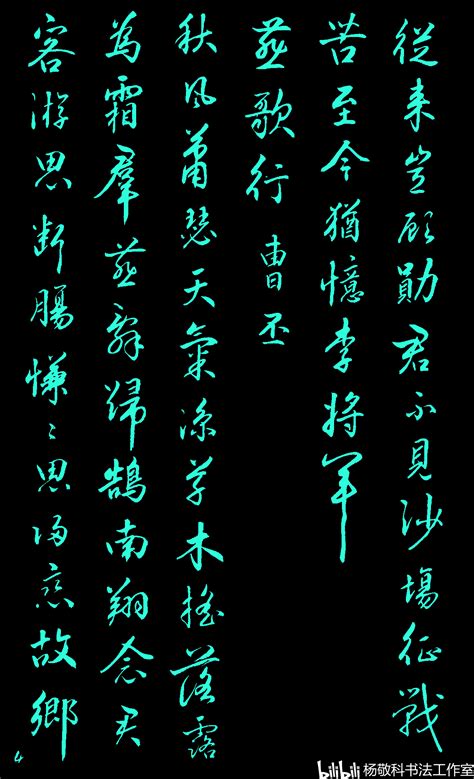 從来豈顧勛君不見沙場征戰
苦至今猶憶李將軍
燕歌行 曹丕
秋風蕭瑟天氣涼草木搖落露
為霜羣燕辭歸鵠南翔念君
客游思断腸慊〻思歸戀故鄉
4
bilibili 杨敬科书法工作室